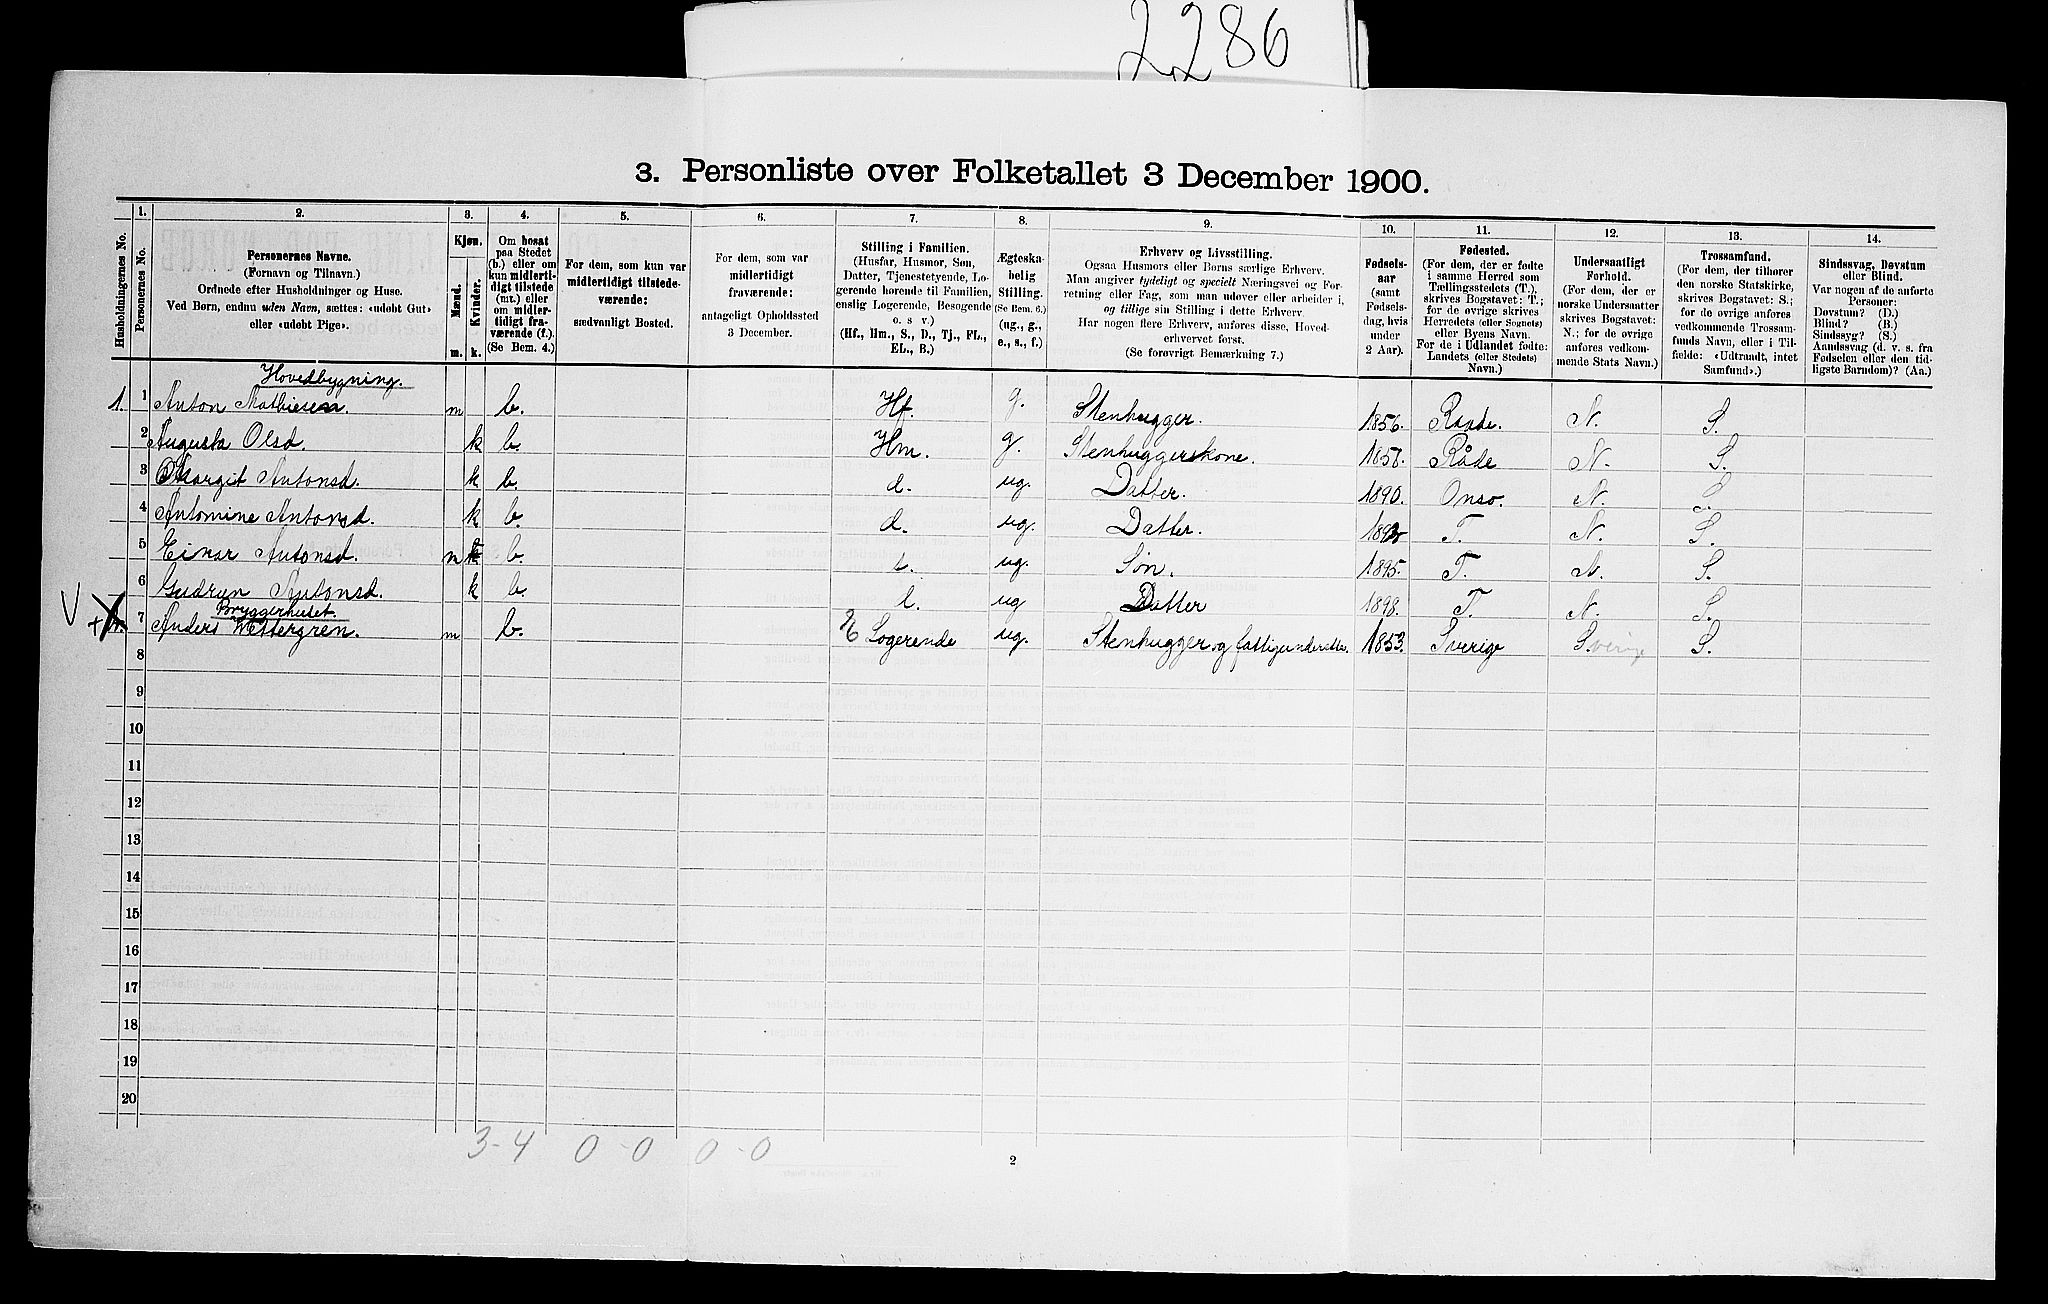 2286
3. Personliste over Folketallet 3 December 1900.
Husholdningernes No.
1. Personernes No.
2. Personernes Navne. (Fornavn og Tilnavn.) Ordnede efter Husholdninger og Huse. Ved Børn, endnu uden Navn, sættes: «udøbt Gut» eller «udøbt Pige».
3. Kjøn. Mænd. m. Kvinder. k.
4. Om bosat paa Stedet (b.) eller om kun midlertidigt tilstede (mt.) eller om midlertidigt fraværende (f.). (Se Bem. 4.)
5. For dem, som kun var midlertidigt tilstedeværende: sædvanligt Bosted.
6. For dem, som var midlertidigt fraværende: antageligt Opholdssted 3 December.
7. Stilling i Familien. (Husfar, Husmor, Søn, Datter, Tjenestetyende, Logerende hørende til Familien, enslig Logerende, Besøgende o. s v.) (Hf., Hm., S., D., Tj., FL., EL., B.)
8. Ægteskabelig Stilling. (Se Bem. 6.) (ug., g., e., s., f.)
9. Erhverv og Livsstilling. Ogsaa Husmors eller Børns særlige Erhverv. Man angiver tydeligt og specielt Næringsvei og Forretning eller Fag, som man udøver eller arbeider i, og tillige sin Stilling i dette Erhverv. Har nogen flere Erhverv, anføres disse, Hovederhvervet først. (Se forøvrigt Bemærkning 7.)
10. Fødselsaar (samt Fødselsdag, hvis under 2 Aar).
11. Fødested. (For dem, der er fødte i samme Herred som Tællingsstedets (T.), skrives Bogstavet: T.; for de øvrige skrives Herredets (eller Sognets) eller Byens Navn. For de i Udlandet fødte: Landets (eller Stedets) Navn.)
12. Undersaatligt Forhold. (For dem, der er norske Undersaatter skrives Bogstavet: N.; for de øvrige anføres vedkommende Stats Navn.)
13. Trossamfund. (For dem, der tilhører den norske Statskirke, skrives Bogstavet: S.; for de øvrige anføres vedkommende Trossamfunds Navn, eller i Tilfælde: «Udtraadt, intet Samfund».)
14. Sindssvag, Døvstum eller Blind. Var nogen af de anførte Personer: Døvstum? (D.) Blind? (B.) Sindssyg? (S.) Aandssvag (d. v. s. fra Fødselen eller den tidligste Barndom)? (Aa.)
Hovedbygning.
1. 1 Anton Mathiesen. m b. Hf. g. Stenhugger. 1856. Raade. N. S.
2 Augusta Olsd. k b. Hm. g. Stenhuggerskone. 1858. Råde N. S.
3 Margit Antonsd. k b. d. ug. Datter. 1890. Onsø. N. S.
4 Antomine Antonsd. k b. d. ug. Datter. 1892 T. N. S.
5 Einar Antonsd. m b. s. ug. Søn. 1895. T. N. S.
6 Gudrun Antonsd. k b. d. ug Datter 1898. T. N. S.
Bryggerhuset
V + 7 Anders Wettergren. m b. E Logerende ug. Stenhugger og fattigunderstø. 1853. Sverige Sverige S.
8
9
10
11
12
13
14
15
16
17
18
19
20
3-4 0-0 0-0
2